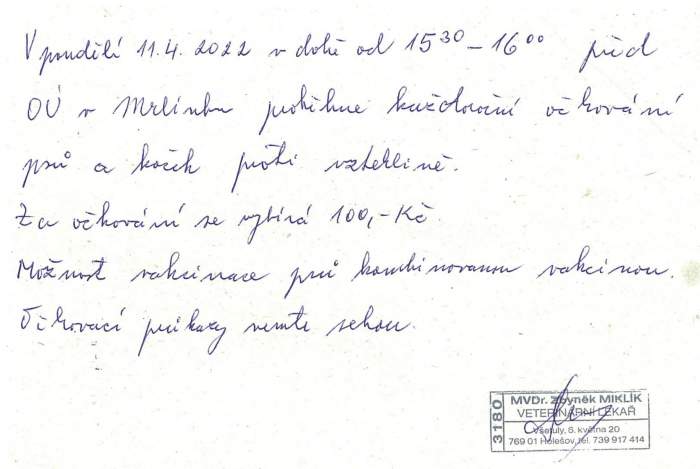 V pondělí 11.4. 2022 v době od 15³⁰ – 16⁰⁰ před
OÚ v Mrlínku proběhne každoroční očkování
psů a koček proti vzteklině.
Za očkování se vybírá 100,-Kč.
Možnost vakcinace psů kombinovanou vakcínou.
Očkovací průkazy vemte sebou.
3180
MVDr. Zbyněk MIKLÍK
VETERINÁRNÍ LÉKAŘ
Všetuly, 6. května 20
769 01 Holešov, tel. 739 917 414